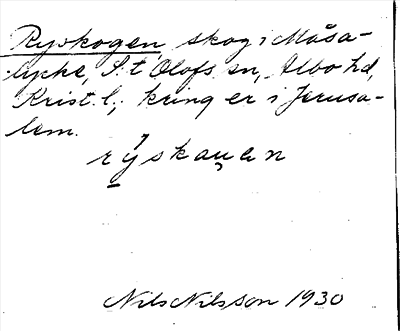 Ryskogen, skog i Måsa-
lycke, S:t Olofs sn, Albo hd,
Krist. l.; kring er i Jerusa-
lem.
rýskau̯an
Nils Nilsson 1930